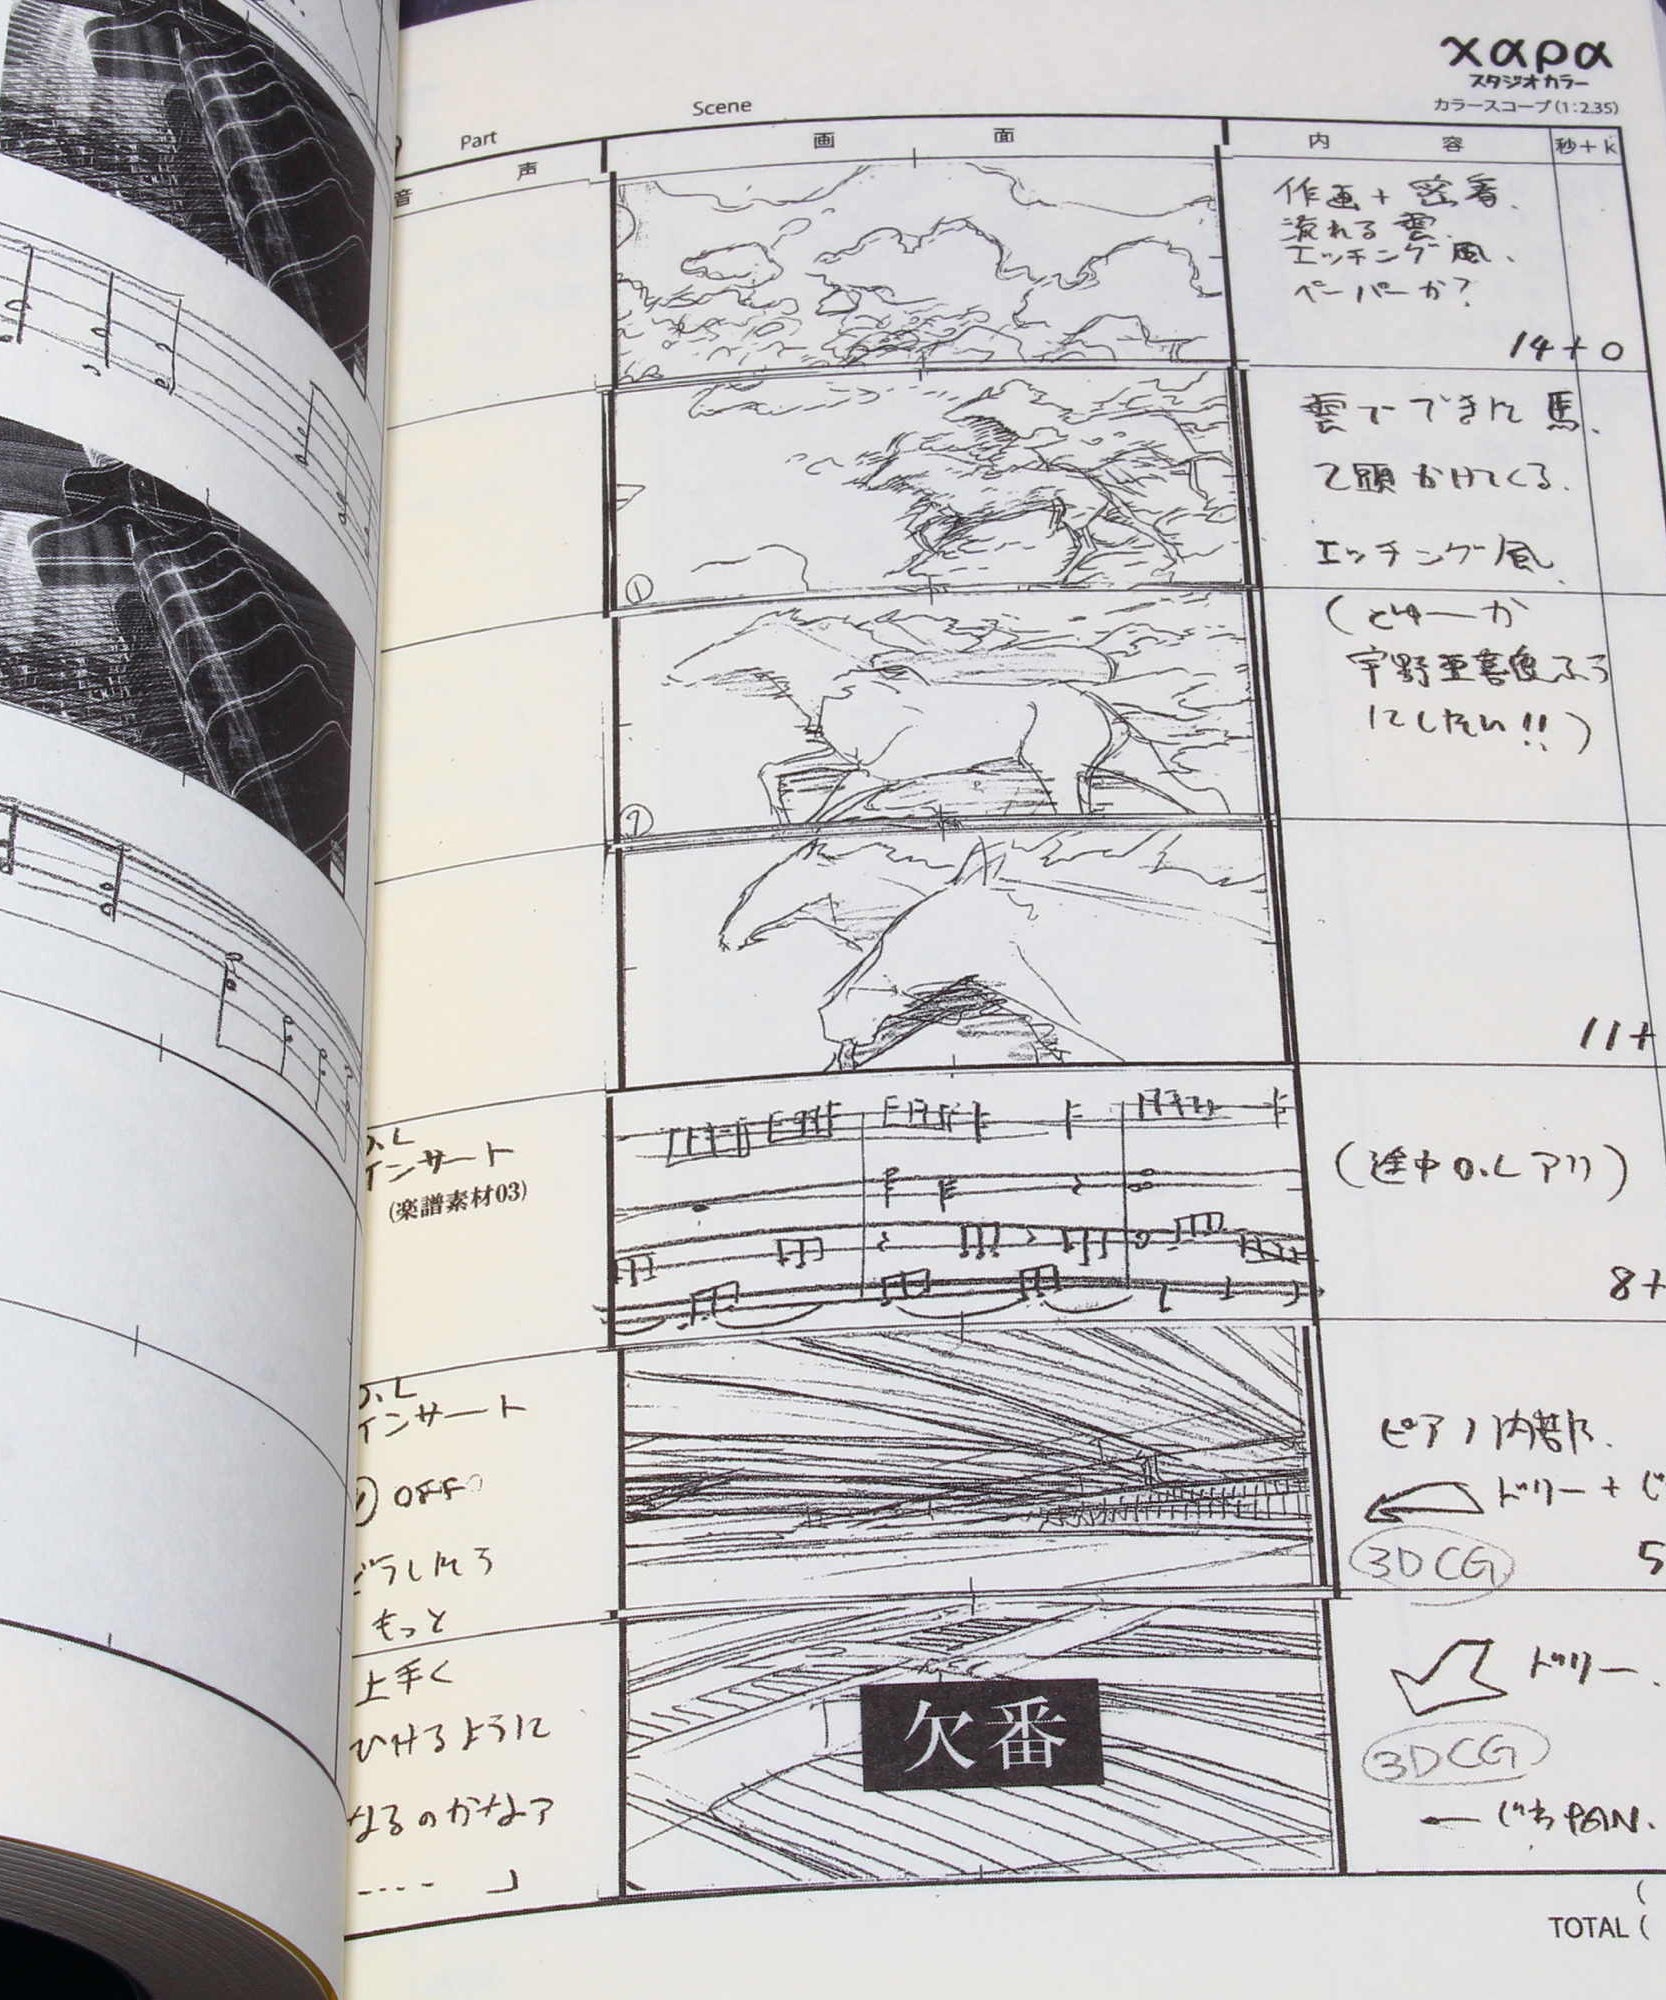 χαρα
スタジオカラー
カラースコープ(1:2.35)
Part
Scene
音 声
画 面
内 容
秒+k
作画+密着.
流れる雲.
エッチング風.
ペーパーか?
14+0
雲でできた馬.
2頭かけてくる.
エッチング風.
①
(どーゆーか
宇野亜喜良ふう
にしたい!!)
②
11+
O.L
インサート
(楽譜素材03)
(途中O.Lアリ)
8+
O.L
インサート
OFF
どうしたら
もっと
ピアノ内部.
ドリー+じ
3DCG
5
上手く
ひけるように
なるのかなァ
‥‥」
欠番
ドリー.
3DCG
←じわPAN.
(
TOTAL (